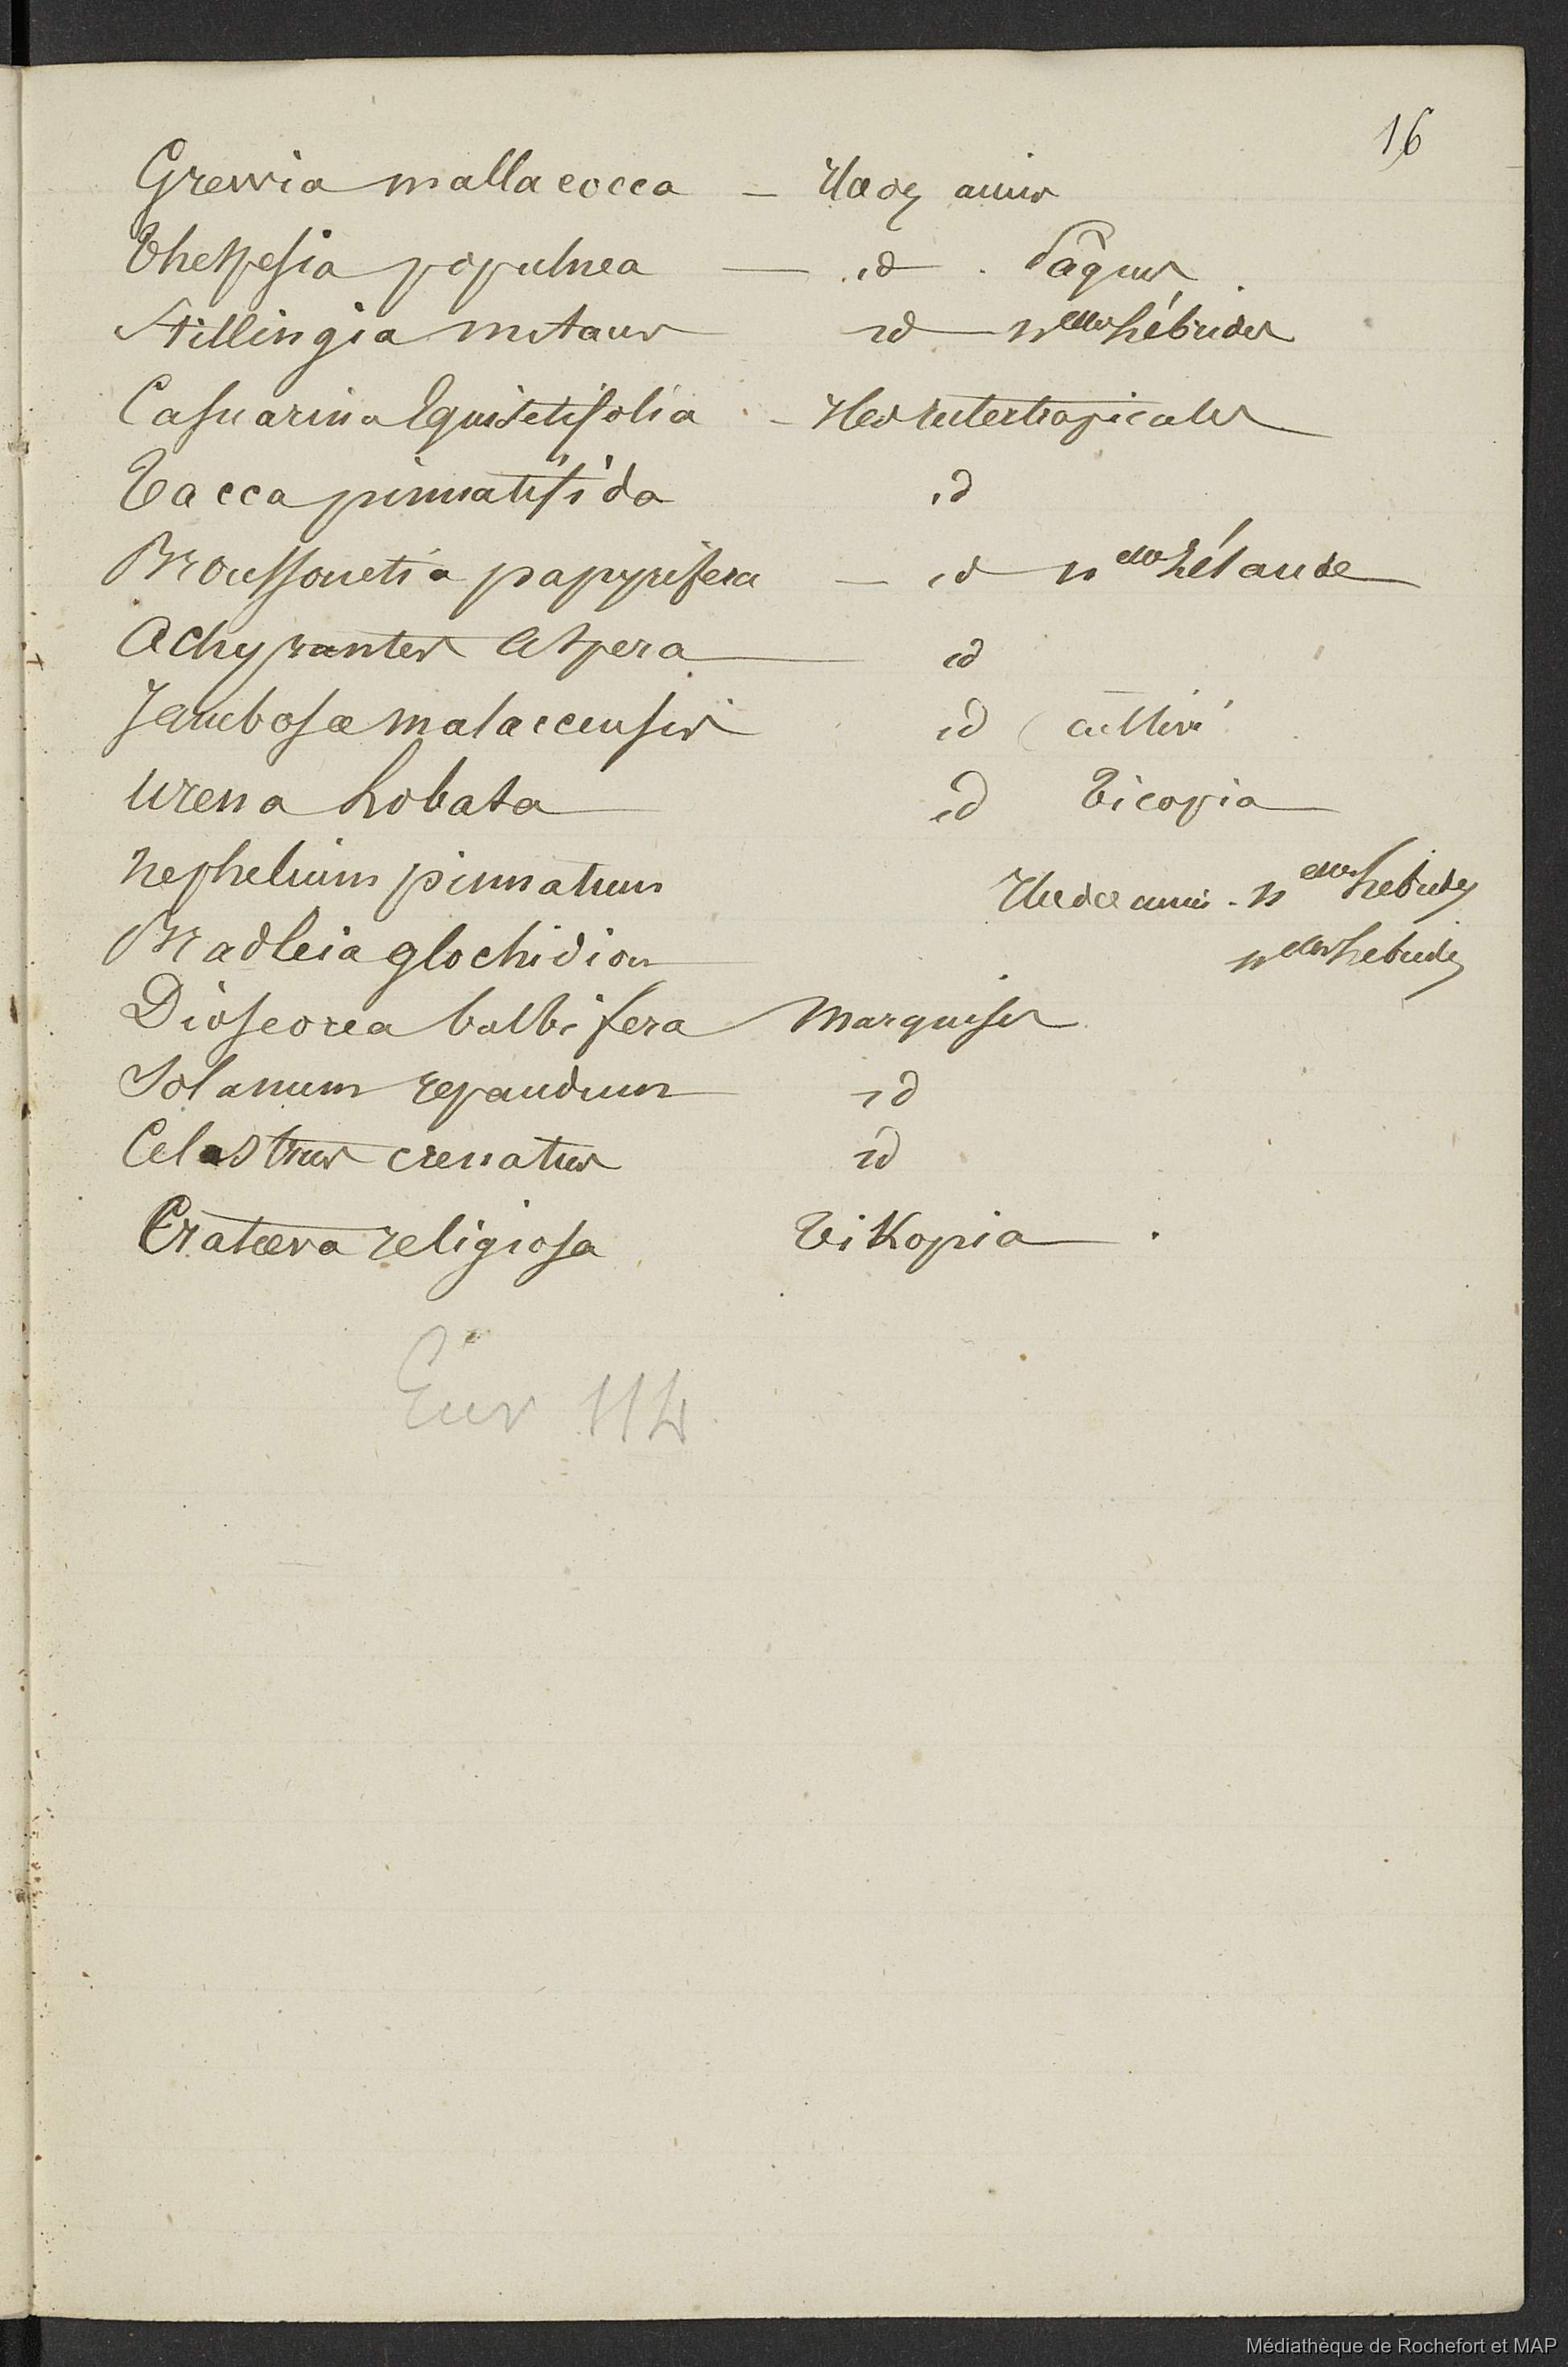 16
Grewia mallacocca — Iles des amis
Thespesia populnea — id. Pâques
Stillingia mitans id — nelles hébrides
Casuarina Equisetifolia - Iles intertropicales
Tacca pinnatifida id
Broussonetia papyrifera — id nelle Zélande
Achyrantes Aspera — id
Jambosa malaccensis id (cultivé
Urena Lobata id Ticopia
Nephelium pinnatum Iles des amis - nelles hebrides
Bradleia glochidion nelles hebrides
Dioscorea bulbifera Marquises
Solanum repandum id
Celastrus crenatus id
Crataeva religiosa Tikopia
114
Médiathèque de Rochefort et MAP